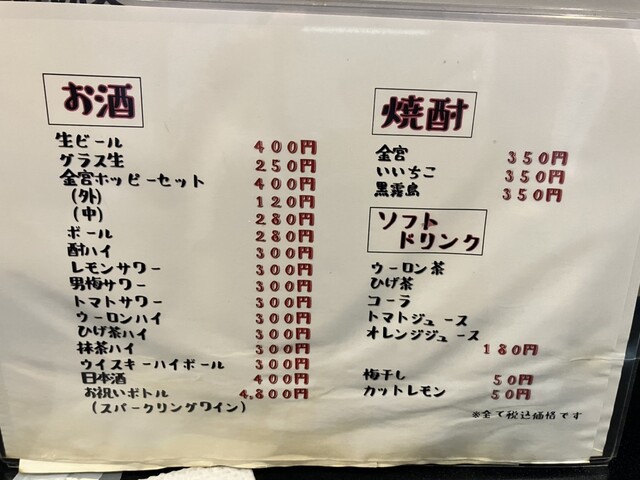 お酒
生ビール 400円
グラス生 250円
金宮ホッピーセット 400円
(外) 120円
(中) 280円
ボール 280円
酎ハイ 300円
レモンサワー 300円
男梅サワー 300円
トマトサワー 300円
ウーロンハイ 300円
ひげ茶ハイ 300円
抹茶ハイ 300円
ウイスキーハイボール 300円
日本酒 400円
お祝いボトル 4,800円
(スパークリングワイン)
焼酎
金宮 350円
いいちこ 350円
黒霧島 350円
ソフト
ドリンク
ウーロン茶
ひげ茶
コーラ
トマトジュース
オレンジジュース
180円
梅干し 50円
カットレモン 50円
※全て税込価格です